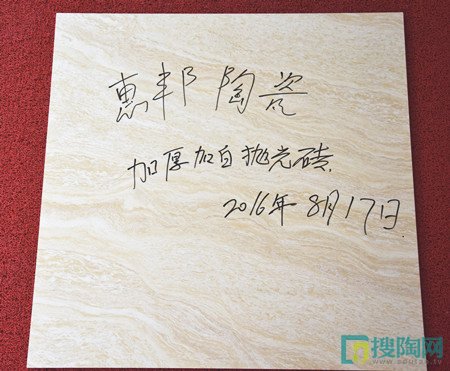 惠邦陶瓷
加厚加白抛光砖
2016年8月17日
搜陶网
www.soutao.tv